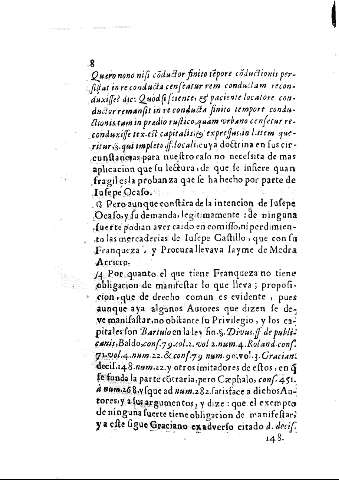 8
Quero nono nisi cõductor finito tẽpore cõductionis per-
sistat in re conducta censeatur rem conductam recon-
duxisse? dic: Quod si sciente, & paciente locatore con-
ductor remansit in re conducta finito tempore condu-
ctionis tam in predio rustico quam urbano censetur re-
conduxisse tex. est capitalis, & expressus in l. item que-
ritur, §. qui impleto ff. locati, cuya doctrina en sus cir-
cunstancias para nuestro caso no necesita de mas
aplicacion que su lectura, de que se infiere quan
fragil es la probanza que se ha hecho por parte de
Iusepe Ocaso.
13 Pero aunque constára de la intencion de Iusepe
Ocaso, y su demanda, legitimamente: de ninguna
suerte podian aver caido en comisso, ni perdimien-
to las mercaderias de Iusepe Castillo, que con su
Franqueza, y Procura llevava Jayme de Medra
Arriero.
14 Por quanto el que tiene Franqueza no tiene
obligacion de manifestar lo que lleva; proposi-
cion, que de derecho comun es evidente, pues
aunque aya algunos Autores que dizen se de-
ve manifestar, no obstante su Privilegio, y los ca-
pitales son Bartulo en la ley 60. §. Divus, ff. de publi-
canis, Baldo, conf. 79. vol. 2. vol 2. num. 4. Roland conf.
71. vol. 4. num. 22. & conf. 79 num. 90. vol. 3. Gracian.
decis. 148. num. 22. y otros imitadores de estos, en q̃
se funda la parte cõtraria, pero Cæphalo, conf. 451.
à num. 268. vsque ad num. 282. satisface a dichos Au-
tores, y a sus argumentos, y dize: que el exempto
de ninguna suerte tiene obligacion de manifestar;
y a este sigue Graciano ex adverso citado d. decis.
148.